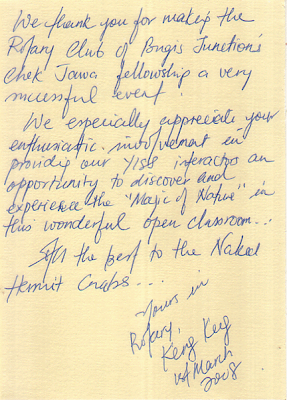 We thank you for making the
Rotary Club of Bugis Junction's
Chek Jawa fellowship a very
successful event.
We especially appreciate your
enthusiastic involvement in
providing our YISS interactors an
opportunity to discover and
experience the "Magic of Nature" in
this wonderful open classroom...
All the best to the Naked
Hermit Crabs...
Yours in
Rotary,
Keng Keg
March
2008